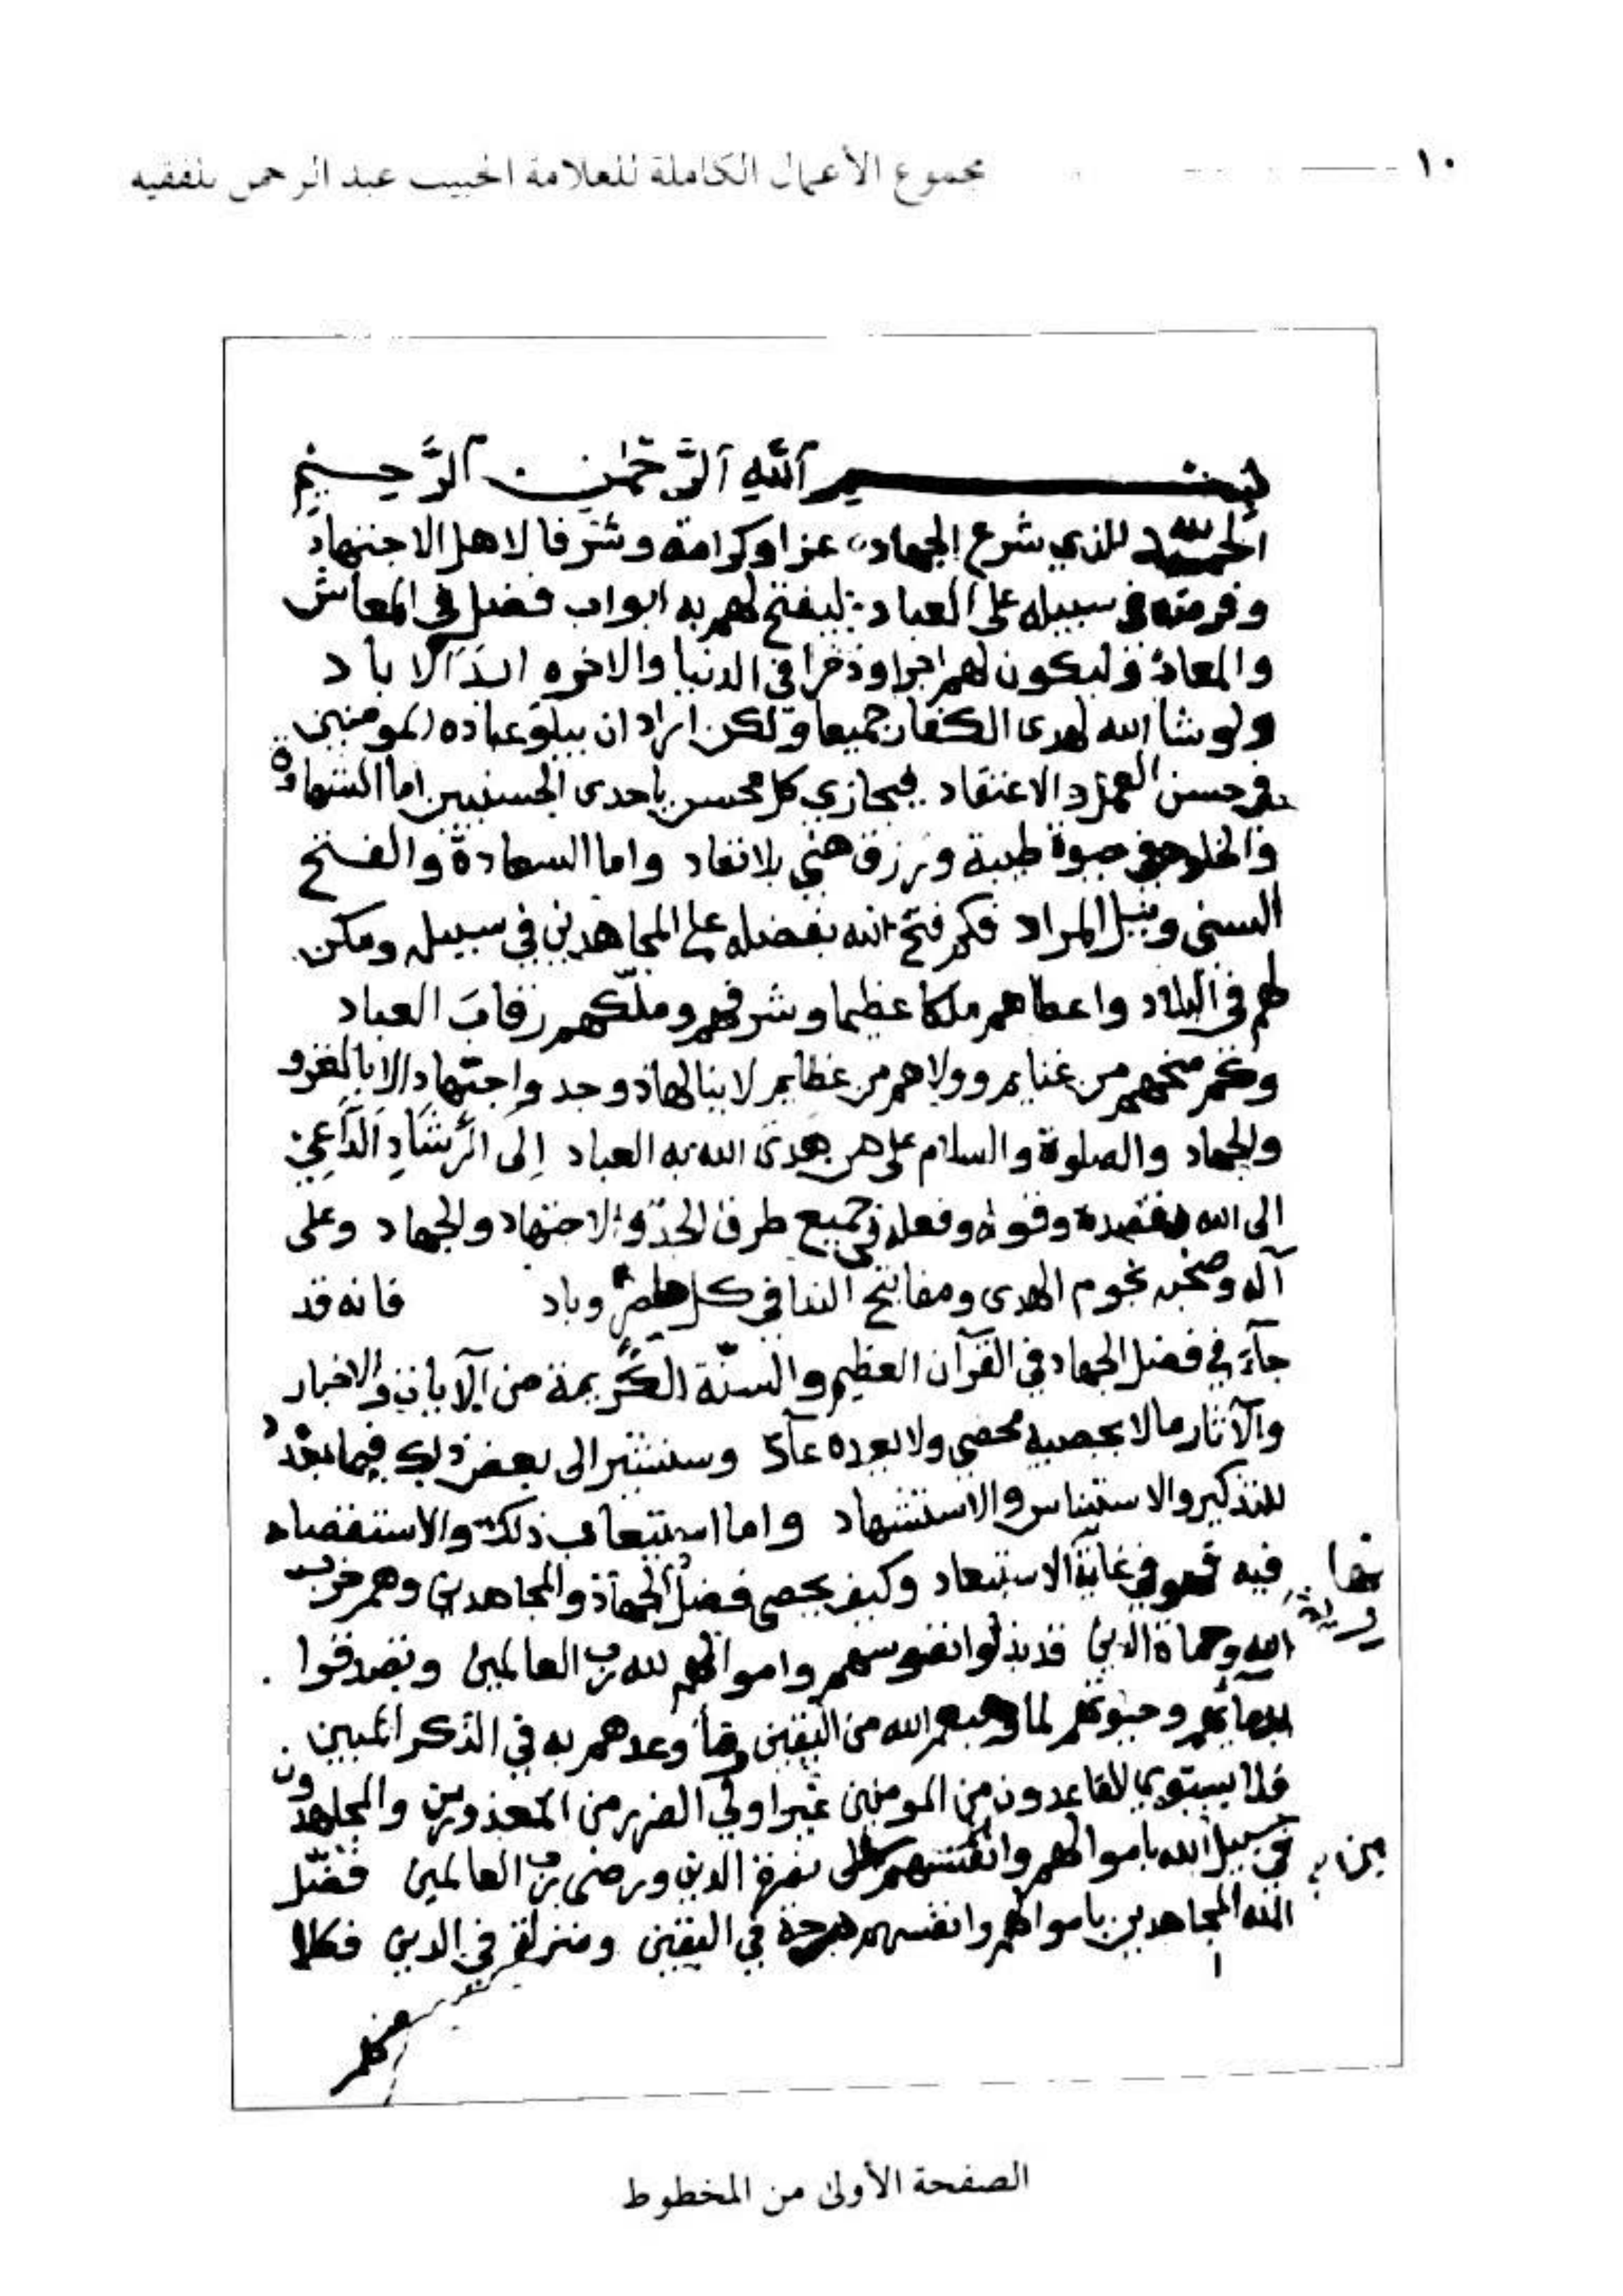 ١٠
مجموع الأعمال الكاملة للعلامة الحبيب عبد الرحمن بلفقيه
بسم الله الرحمن الرحيم
الحمد لله الذي شرع الجهاد عزا وكرامة وشرفا لاهل الاجتهاد
وفرضه في سبيله على العباد ليفتح لهم به ابواب فضل في المعاش
والمعاد وليكون لهم اجرا وذخرا في الدنيا والاخره ابد الاباد
ولو شا الله لهدى الكفار جميعا ولكن اراد ان يبلو عباده المومنين
في حسن العمل والاعتقاد فيجازي كل محسن باحدى الحسنيين اما الشهادة
والخلود في حيوة طيبة ورزق هني بلا نفاد واما السعادة والفتح
السني ونيل المراد فكم فتح الله بفضله على المجاهدين في سبيله ومكن
لهم في البلاد واعطاهم ملكا عظيما وشرفهم وملكهم رقاب العباد
وكم منحهم من غنايم وولاهم من عظايم لا ينالها ذو جد واجتهاد الا بالغزو
والجهاد والصلوة والسلام على من هدى الله به العباد إلى الرشاد الداعي
الى الله بقصده وقوله وفعله في جميع طرق الجد والاجتهاد والجهاد وعلى
آله وصحبه نجوم الهدى ومفاتيح الندا في كل حاضر وباد فانه قد
جآء في فضل الجهاد في القرآن العظيم والسنة الكريمة من الآيات والاخبار
والآثار مالا يحصيه محصي ولا يعده عآد وسنشير الى بعض ذلك فيما بعد
للتذكير والاستيناس والاستشهاد واما استيعاب ذلك والاستقصاء
فيه فهو في غاية الاستبعاد وكيف يحصى فضل الجهاد والمجاهدين وهم حزب
الله وحماة الدين قد بذلوا نفوسهم واموالهم لله رب العالمين وتصدقوا
بدمائهم وحيوتهم لما وهبهم الله من اليقين وما وعدهم به في الذكر المبين
فلا يستوي القاعدون من المومنين غير اولي الضرر من المعذورين والمجاهدون
في سبيل الله باموالهم وانفسهم على نصرة الدين ورضى رب العالمين فضل
الله المجاهدين باموالهم وانفسهم درجة في اليقين ومنزلة في الدين فكلا
الصفحة الأولى من المخطوط